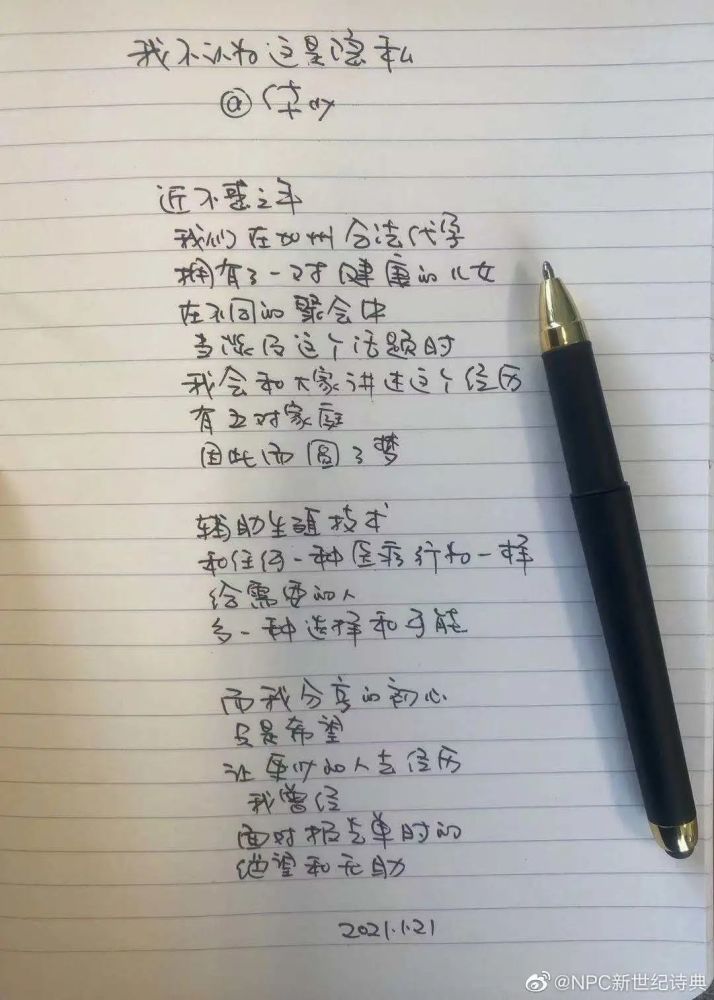 我不认为这是隐私
近不惑之年
我们在加州合法代孕
拥有了一对健康的儿女
在不同的聚会中
当谈及这个话题时
我会和大家讲述这个经历
有五对家庭
因此而圆了梦
辅助生殖技术
和任何一种医疗行为一样
给需要的人
多一种选择和可能
而我分享的初心
只是希望
让更少的人去经历
我曾经
面对报告单时的
绝望和无助
2021.1.21
@NPC新世纪诗典